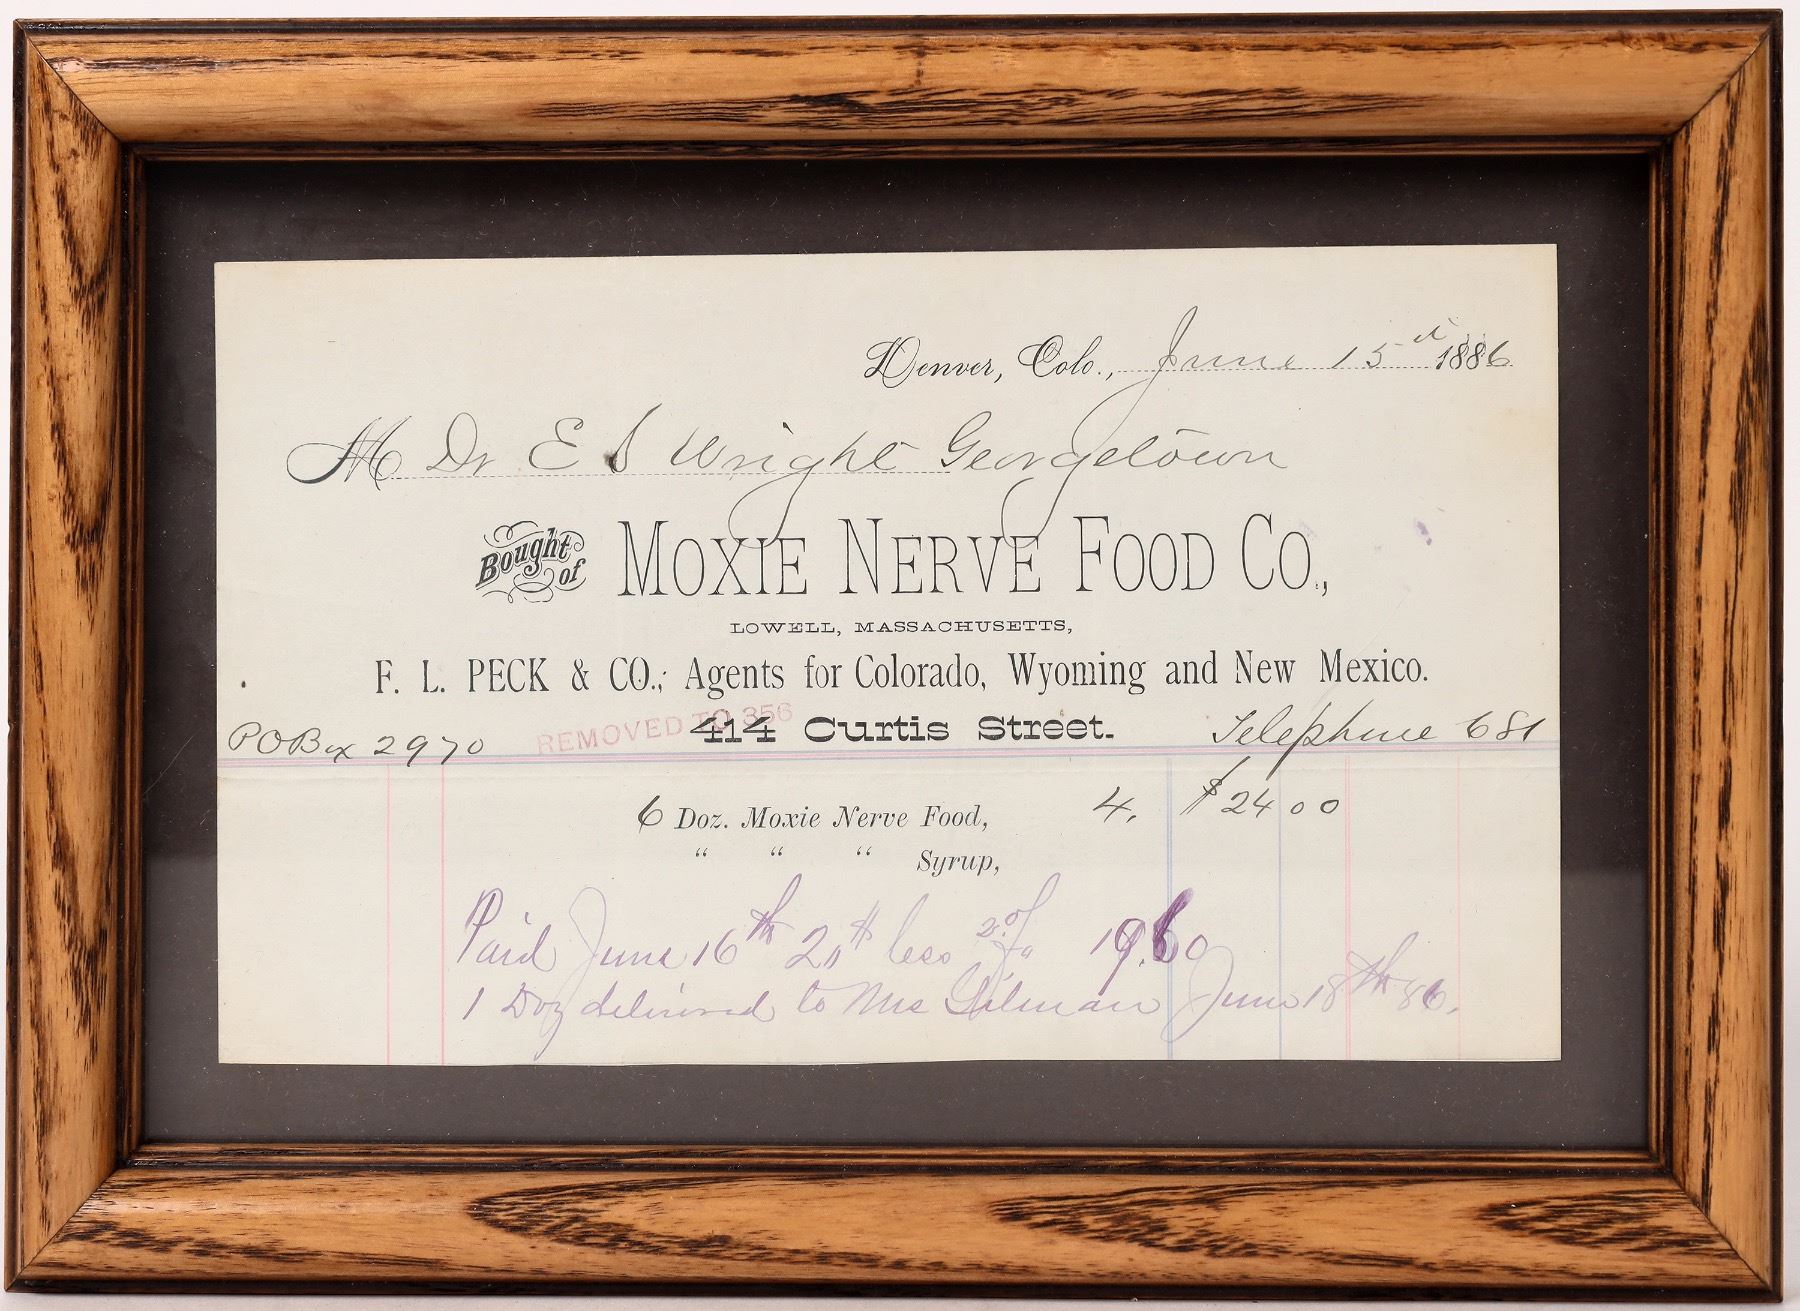 Denver, Colo., June 15th 1886
M Dr E S Wright Georgetown
Bought of MOXIE NERVE FOOD CO.,
LOWELL, MASSACHUSETTS,
F. L. PECK & CO., Agents for Colorado, Wyoming and New Mexico.
REMOVED TO 356
414 Curtis Street.
POBox 2970 Telephone 681
6 Doz. Moxie Nerve Food, 4. $24 00
" " " Syrup,
Paid June 16th 20$ less 2% 19.60
1 Doz delivered to Mrs Gilman June 18th 86.